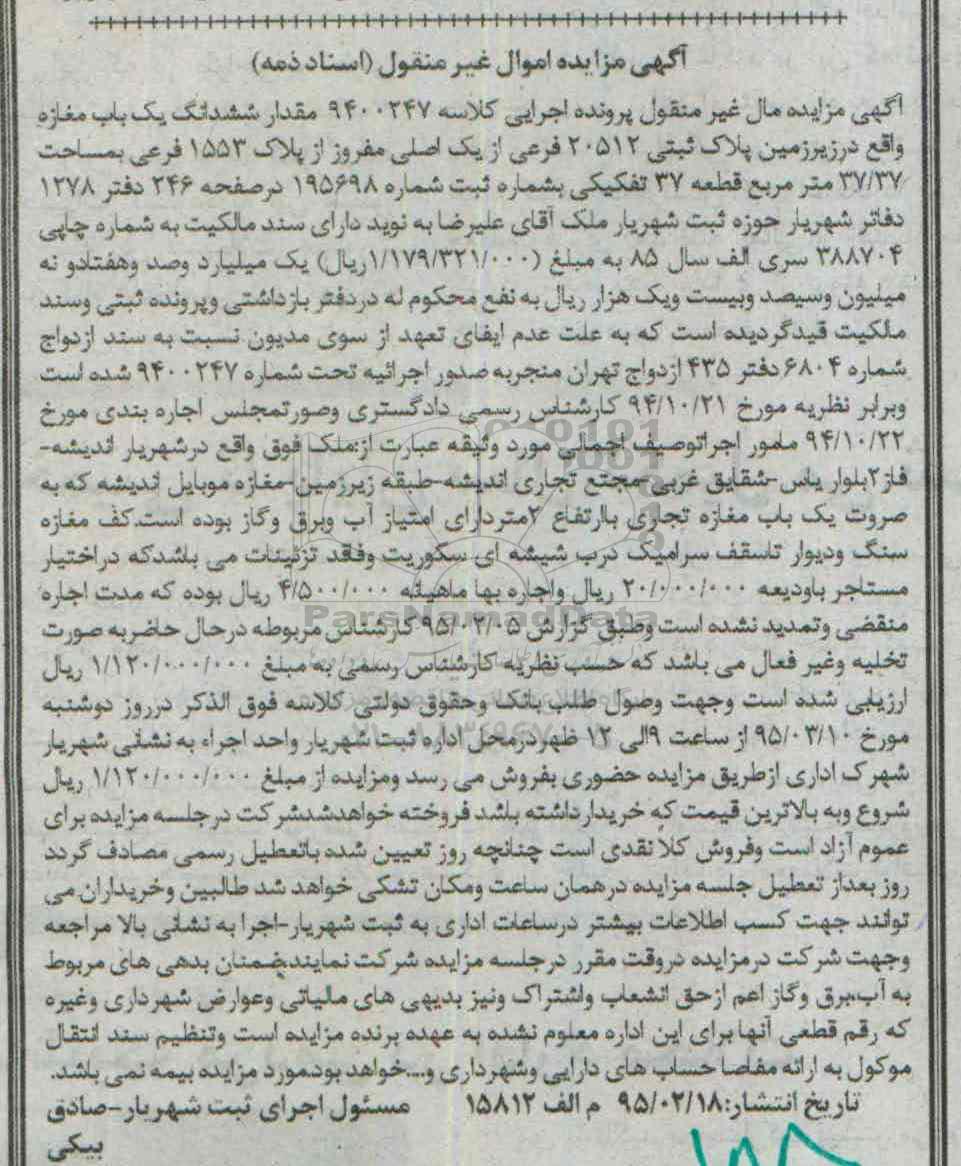 آگهی مزایده اموال غیر منقول (اسناد ذمه)
آگهی مزایده مال غیر منقول پرونده اجرایی کلاسه ۹۴۰۰۲۴۷ مقدار ششدانگ یک باب مغازه
واقع درزیرزمین پلاک ثبتی ۲۰۵۱۲ فرعی از یک اصلی مفروز از پلاک ۱۵۵۳ فرعی بمساحت
۳۷/۳۷ متر مربع قطعه ۳۷ تفکیکی بشماره ثبت شماره ۱۹۵۶۹۸ درصفحه ۲۴۶ دفتر ۱۲۷۸
دفاتر شهریار حوزه ثبت شهریار ملک آقای علیرضا به نوید دارای سند مالکیت به شماره چاپی
۳۸۸۷۰۴ سری الف سال ۸۵ به مبلغ (۱/۱۷۹/۳۲۱/۰۰۰ریال) یک میلیارد وصد وهفتادو نه
میلیون وسیصد وبیست ویک هزار ریال به نفع محکوم له دردفتر بازداشتی وپرونده ثبتی وسند
مالکیت قیدگردیده است که به علت عدم ایفای تعهد از سوی مدیون نسبت به سند ازدواج
شماره ۶۸۰۴ دفتر ۴۳۵ ازدواج تهران منجربه صدور اجرائیه تحت شماره ۹۴۰۰۲۴۷ شده است
وبرابر نظریه مورخ ۹۴/۱۰/۲۱ کارشناس رسمی دادگستری وصورتمجلس اجاره بندی مورخ
۹۴/۱۰/۲۲ مامور اجراتوصیف اجمالی مورد وثیقه عبارت از:ملک فوق واقع درشهریار اندیشه-
فاز۲بلوار یاس-شقایق غربی-مجتع تجاری اندیشه-طبقه زیرزمین-مغازه موبایل اندیشه که به
صروت یک باب مغازه تجاری باارتفاع ۲متردارای امتیاز آب وبرق وگاز بوده است.کف مغازه
سنگ ودیوار تاسقف سرامیک درب شیشه ای سکوریت وفاقد تزئینات می باشدکه دراختیار
مستاجر باودیعه ۲۰/۰۰۰/۰۰۰ ریال واجاره بها ماهیانه ۴/۵۰۰/۰۰۰ ریال بوده که مدت اجاره
منقضی وتمدید نشده است وطبق گزارش ۹۵/۰۲/۰۵ کارشناس مربوطه درحال حاضربه صورت
تخلیه وغیر فعال می باشد که حسب نظریه کارشناس رسمی به مبلغ ۱/۱۲۰/۰۰۰/۰۰۰ ریال
ارزیابی شده است وجهت وصول طلب بانک وحقوق دولتی کلاسه فوق الذکر درروز دوشنبه
مورخ ۹۵/۰۳/۱۰ از ساعت ۹الی ۱۲ ظهردرمحل اداره ثبت شهریار واحد اجراء به نشانی شهریار
شهرک اداری ازطریق مزایده حضوری بفروش می رسد ومزایده از مبلغ ۱/۱۲۰/۰۰۰/۰۰۰ ریال
شروع وبه بالاترین قیمت که خریدارداشته باشد فروخته خواهدشدشرکت درجلسه مزایده برای
عموم آزاد است وفروش کلا نقدی است چنانچه روز تعیین شده باتعطیل رسمی مصادف گردد
روز بعداز تعطیل جلسه مزایده درهمان ساعت ومکان تشکی خواهد شد طالبین وخریداران می
توانند جهت کسب اطلاعات بیشتر درساعات اداری به ثبت شهریار-اجرا به نشانی بالا مراجعه
وجهت شرکت درمزایده دروقت مقرر درجلسه مزایده شرکت نمایند.ضمنان بدهی های مربوط
به آب،برق وگاز اعم ازحق انشعاب واشتراک ونیز بدیهی های مالیاتی وعوارض شهرداری وغیره
که رقم قطعی آنها برای این اداره معلوم نشده به عهده برنده مزایده است وتنظیم سند انتقال
موکول به ارائه مفاصا حساب های دارایی وشهرداری و....خواهد بود.مورد مزایده بیمه نمی باشد.
تاریخ انتشار:۹۵/۰۲/۱۸ م الف ۱۵۸۱۲ مسئول اجرای ثبت شهریار-صادق
بیکی
ParsNamadData